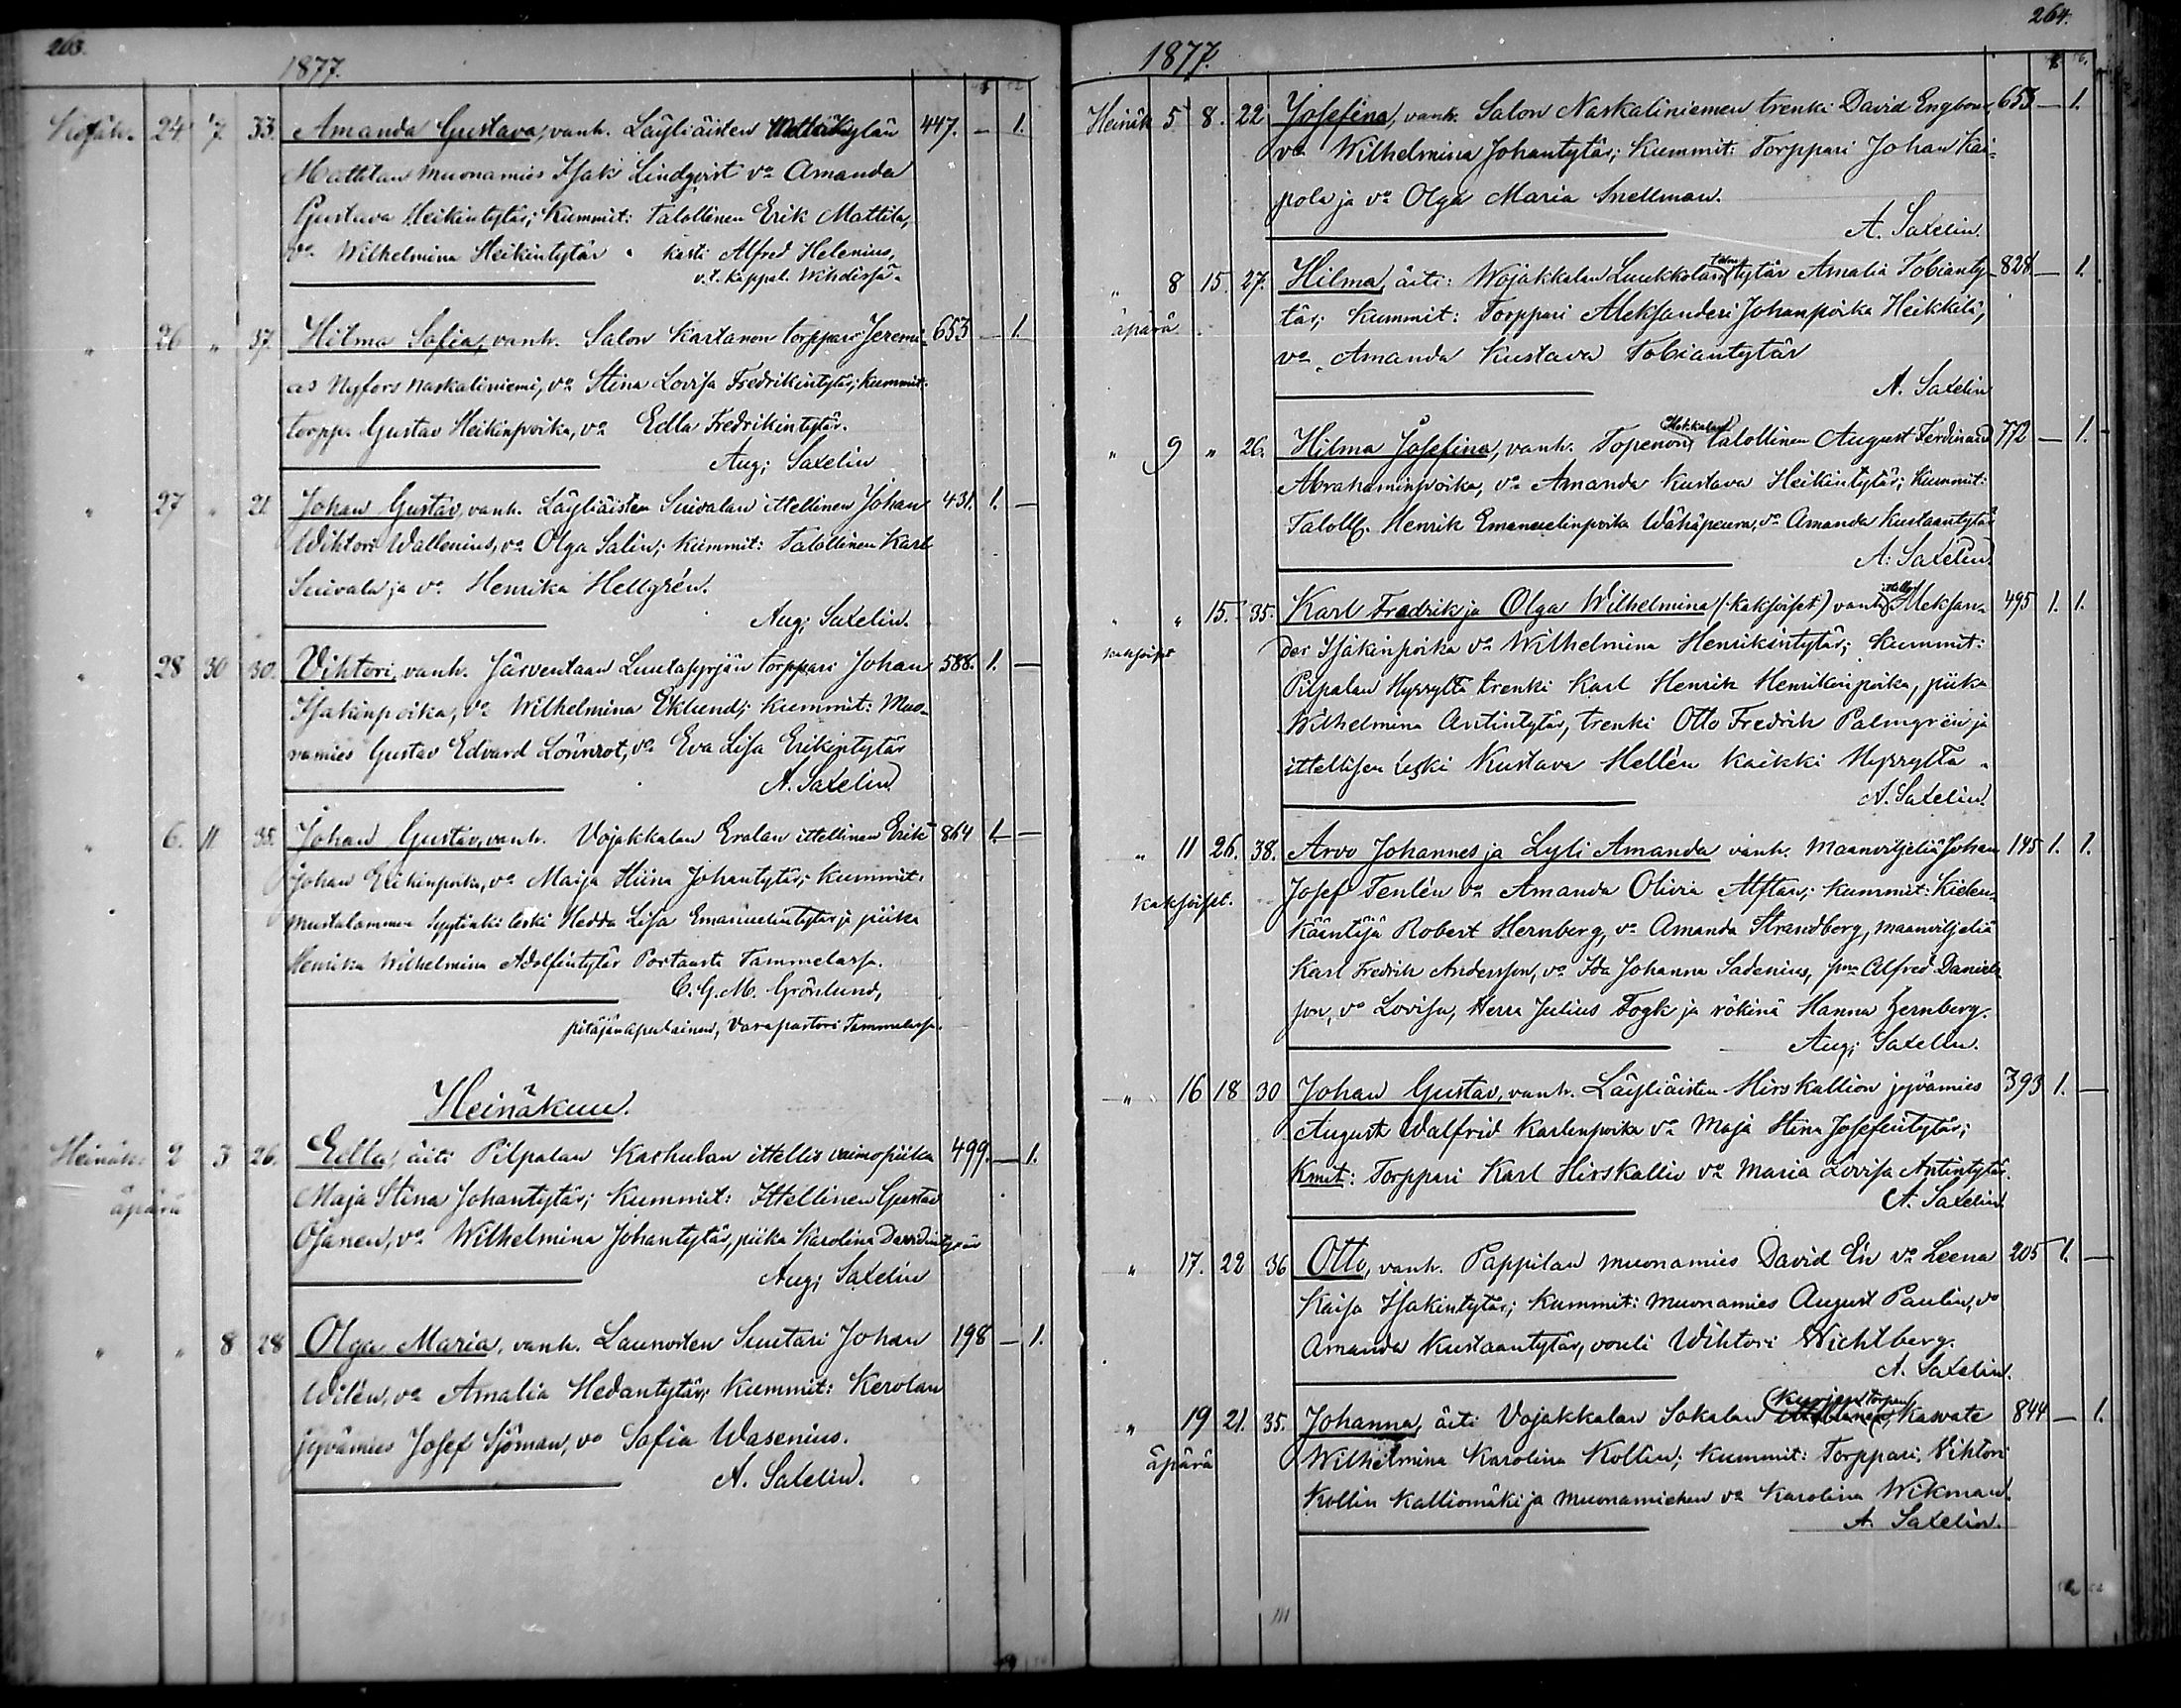 263.
1877.
24 7 33. Amanda Gustava, vanh. Läyliäisten 447. — 1.
Mattilan muonamies Isak Lindqvist vo Amanda
Gustava Heikintytär; Kummit: Talollinen Erik Mattila,
vo Wilhelmina Heikintytär. kasti Alfred Helenius,
v.t. Kappal. Wihdissä.
" 26 " 37. Hilma Sofia, vanh. Salon Kartanon torppari Jeremi- 653 — 1.
as Nyfors Naskaliniemi, vo Stina Lovisa Fredrikintytär; Kummit:
torpp. Gustav Heikinpoika, vo Edla Fredrikintytär.
Aug: Saxelin
" 27 " 21 Johan Gustav, vanh. Läyliäisten Suivalan ittellinen Johan 431. 1. —
Wihtori Wallenius, vo Olga Salin; kummit: Talollinen Karl
Suivala ja vo Henrika Hellgrén.
Aug: Saxelin.
" 28 30 30. Vihtori, vanh. Järventaan Luutasyrjän torppari Johan 588. 1. —
Isakinpoika, vo Wilhelmina Eklund; Kummit: Muo-
namies Gustav Edvard Lönnrot, vo Eva Lisa Erikintytär
A. Saxelin
" 6. 11 35. Johan Gustav, vanh. Vojakkalan Eralan ittellinen Erik 864 1. —
Johan Erikinpoika, vo Maija Stiina Johantytär; Kummit:
Mustalammen leski Hedda Lisa Emanuelintytär ja piika
Henrika Wilhelmina Adolfintytär Portaasta Tammelassa.
C. G. M. Grönlund,
pitäjänapulainen, Varapastori Tammelassa.
Heinäkuu.
Heinäk. 2 3 26. Edla, äiti Pilpalan Kaskulan ittellis vaimo piika 499. — 1.
äpärä Maja Stina Johantytär; Kummit: Ittellinen Gustav
Ojanen, vo Wilhelmina Johantytär, piika Karolina Davidintytär
Aug: Saxelin
" " 8 28 Olga Maria, vanh. Launosten Suutari Johan 198 — 1.
Wilén, vo Amalia Hedantytär; Kummit: Kerolan
jyvämies Josef Sjöman, vo Sofia Wasenius.
A. Saxelin.
264.
1877.
Heinäk 5 8. 22 Josefina, vanh. Salon Naskaliniemen trenki David Engbom, 653 — 1.
vo Wilhelmina Johantytär; Kummit: Torppari Johan Kai-
pola ja vo Olga Maria Snellman.
A. Saxelin.
" 8 15. 27. Hilma, äiti: Wojakkalan Luukkolan tytär Amalia Tobianty- 828 — 1.
äpärä tär; Kummit: Torppari Aleksanderi Johanpoika Heikkilä,
vo Amanda Kustava Tobiantytär
A. Saxelin
Hokkalan
" 9 " 26. Hilma Josefina, vanh. Topenon talollinen August Ferdinand 772 — 1.
Abrahaminpoika, vo Amanda Kustava Heikintytär; Kummit:
Taloll. Henrik Emanuelinpoika Wähäpeura, vo Amanda Kustaantytär
A. Saxelin.
" " 15. 35. Karl Fredrik ja Olga Wilhelmina (kaksoiset) vanh. Aleksan- 495 1. 1.
kaksoiset der Isakinpoika vo Wilhelmina Henrikintytär; Kummit:
Pilpalan Hyrsyltä trenki Karl Henrik Henrikinpoika, piika
Wilhelmina Antintytär, trenki Otto Fredrik Palmgrén ja
ittellisen leski Kustava Hellén kaikki Hyrsyltä.
A. Saxelin.
" 11 26. 38. Arvo Johannes ja Lyli Amanda vanh. Maanviljeliä Johan 145 1. 1.
kaksoiset. Josef Tenlén vo Amanda Olivia Alftan; Kummit: Kielen-
kääntäjä Robert Hernberg, vo Amanda Strandberg, maanviljeliä
Karl Fredrik Andersson, vo Ida Johanna Sadenius, Alfred Daniels
son, vo Lovisa, Herra Julius Fogk ja rökinä Hanna Hernberg.
Aug: Saxelin.
" 16 18 30 Johan Gustav, vanh. Läyliäisten Hirskallion jyvämies 393 1. —
August Walfrid Karlenpoika vo Maja Stina Josefintytär;
Kmit: Torppari Karl Hirskallio vo Maria Lovisa Antintytär.
A. Saxelin
" 17. 22 36 Otto, vanh. Pappilan muonamies David Ek vo Leena 205 1. —
Kaisa Isakintytär; Kummit: muonamies August Paulin, vo
Amanda Kustaantytär, vouti Wihtori Wichtberg.
A. Saxelin.
Kurjen torpan
" 19 21. 35. Johanna, äiti Vojakkalan Sakalan kasvate 844 — 1.
äpärä Wilhelmina Karolina Kollin; Kummit: Torppari Vihtori
Kollin Kalliomäki ja muonamiehen vo Karolina Wikman.
A. Saxelin.